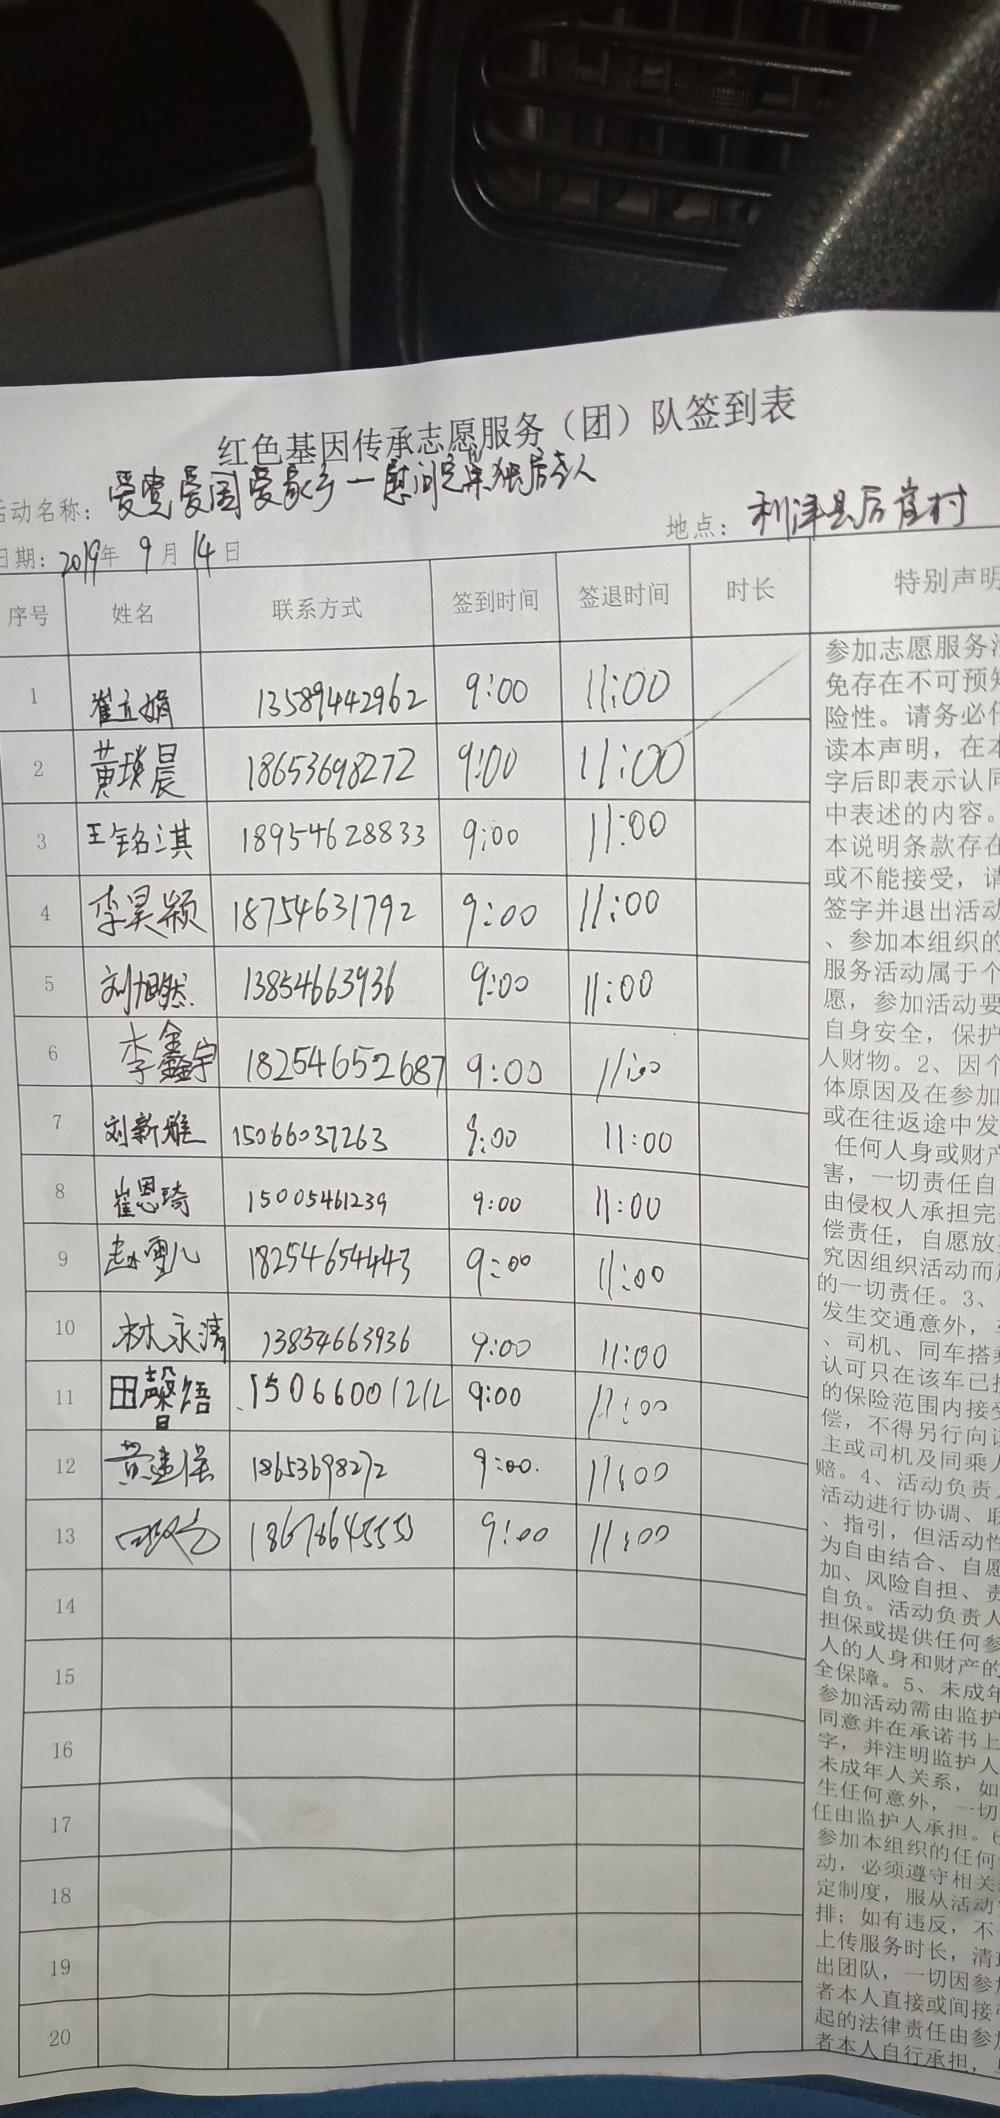 红色基因传承志愿服务（团）队签到表
活动名称： 爱党爱国爱家乡一慰问 独居老人
地点： 利津县后崖村
日期: 2019年 9 月 14 日
序号 姓名 联系方式 签到时间 签退时间 时长 特别声明
1 崔立娟 13589442962 9:00 11:00
2 黄瑛晨 18653698272 9:00 11:00
3 王铭淇 18954628833 9:00 11:00
4 李昊颖 18754631792 9:00 11:00
5 刘旭然 13854663936 9:00 11:00
6 李鑫宇 18254652687 9:00 11:00
7 刘新雅 15066037263 9:00 11:00
8 崔恩琦 15005461239 9:00 11:00
9 赵雪儿 18254654443 9:00 11:00
10 林永清 13854663936 9:00 11:00
11 田馨语 15066001212 9:00 11:00
12 黄建保 18653698272 9:00. 11:00
13 18678645550 9:00 11:00
14
15
16
17
18
19
20
参加志愿服务活
免存在不可预知
险性。请务必仔
读本声明，在本
字后即表示认同
中表述的内容。
本说明条款存在
或不能接受，请
签字并退出活动
、参加本组织的
服务活动属于个
愿，参加活动要
自身安全，保护
人财物。2、因个
体原因及在参加
或在往返途中发
任何人身或财产
害，一切责任自
由侵权人承担完
偿责任，自愿放
究因组织活动而
的一切责任。3、
发生交通意外，
、司机、同车搭乘
认可只在该车已
的保险范围内接受
偿，不得另行向
主或司机及同乘人
赔。4、活动负责人
活动进行协调、联
、指引，但活动性
为自由结合、自愿
加、风险自担、责
自负。活动负责人
担保或提供任何参
人的人身和财产的
全保障。5、未成年
参加活动需由监护
同意并在承诺书上
字，并注明监护人
未成年人关系，如
生任何意外，一切
任由监护人承担。6
参加本组织的任何
动，必须遵守相关
定制度，服从活动
排；如有违反，不
上传服务时长，清
出团队，一切因参加
者本人直接或间接
起的法律责任由参加
者本人自行承担，